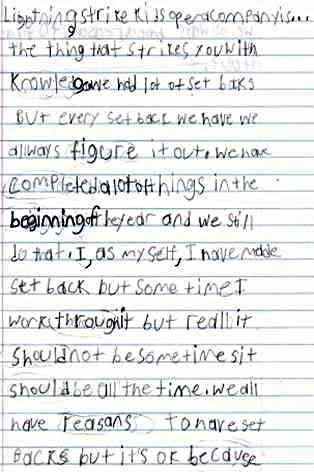 Lightning strike Kids opera company is...
the thing that strikes you with
Knowledge we had lot of set backs
But every set back we have we
allways figure it out. we have
completed alot of things in the
beginning of the year and we still
do that. I, as my self, I have made
set back but some time I
work through it but really it
should not be some time s it
should be all the time. we all
have reasons to have set
Backs but it's ok because